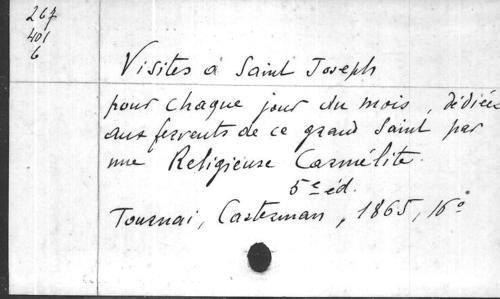 267
401
6
Visites à Saint Joseph
pour chaque jour du mois, dédiées
aux fervents de ce grand Saint par
une Religieuse Carmélite.
5e éd.
Tournai, Casterman, 1865, 16°